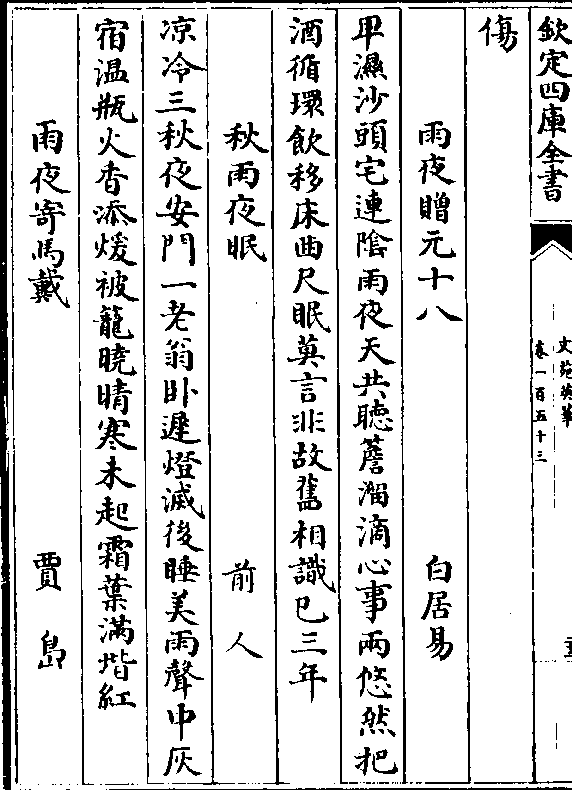 欽定四庫全書
文苑英華
卷一百五十三
傷
雨夜贈元十八 白居易
卑濕沙頭宅連陰雨夜天共聽簷溜滴心事兩悠然把
酒循環飲移床曲尺眠莫言非故舊相識已三年
秋雨夜眠 前人
凉冷三秋夜安門一老翁卧遲燈滅後睡美雨聲中灰
宿温瓶火香添煖被籠曉晴寒未起霜葉滿堦紅
雨夜寄馬戴 賈島